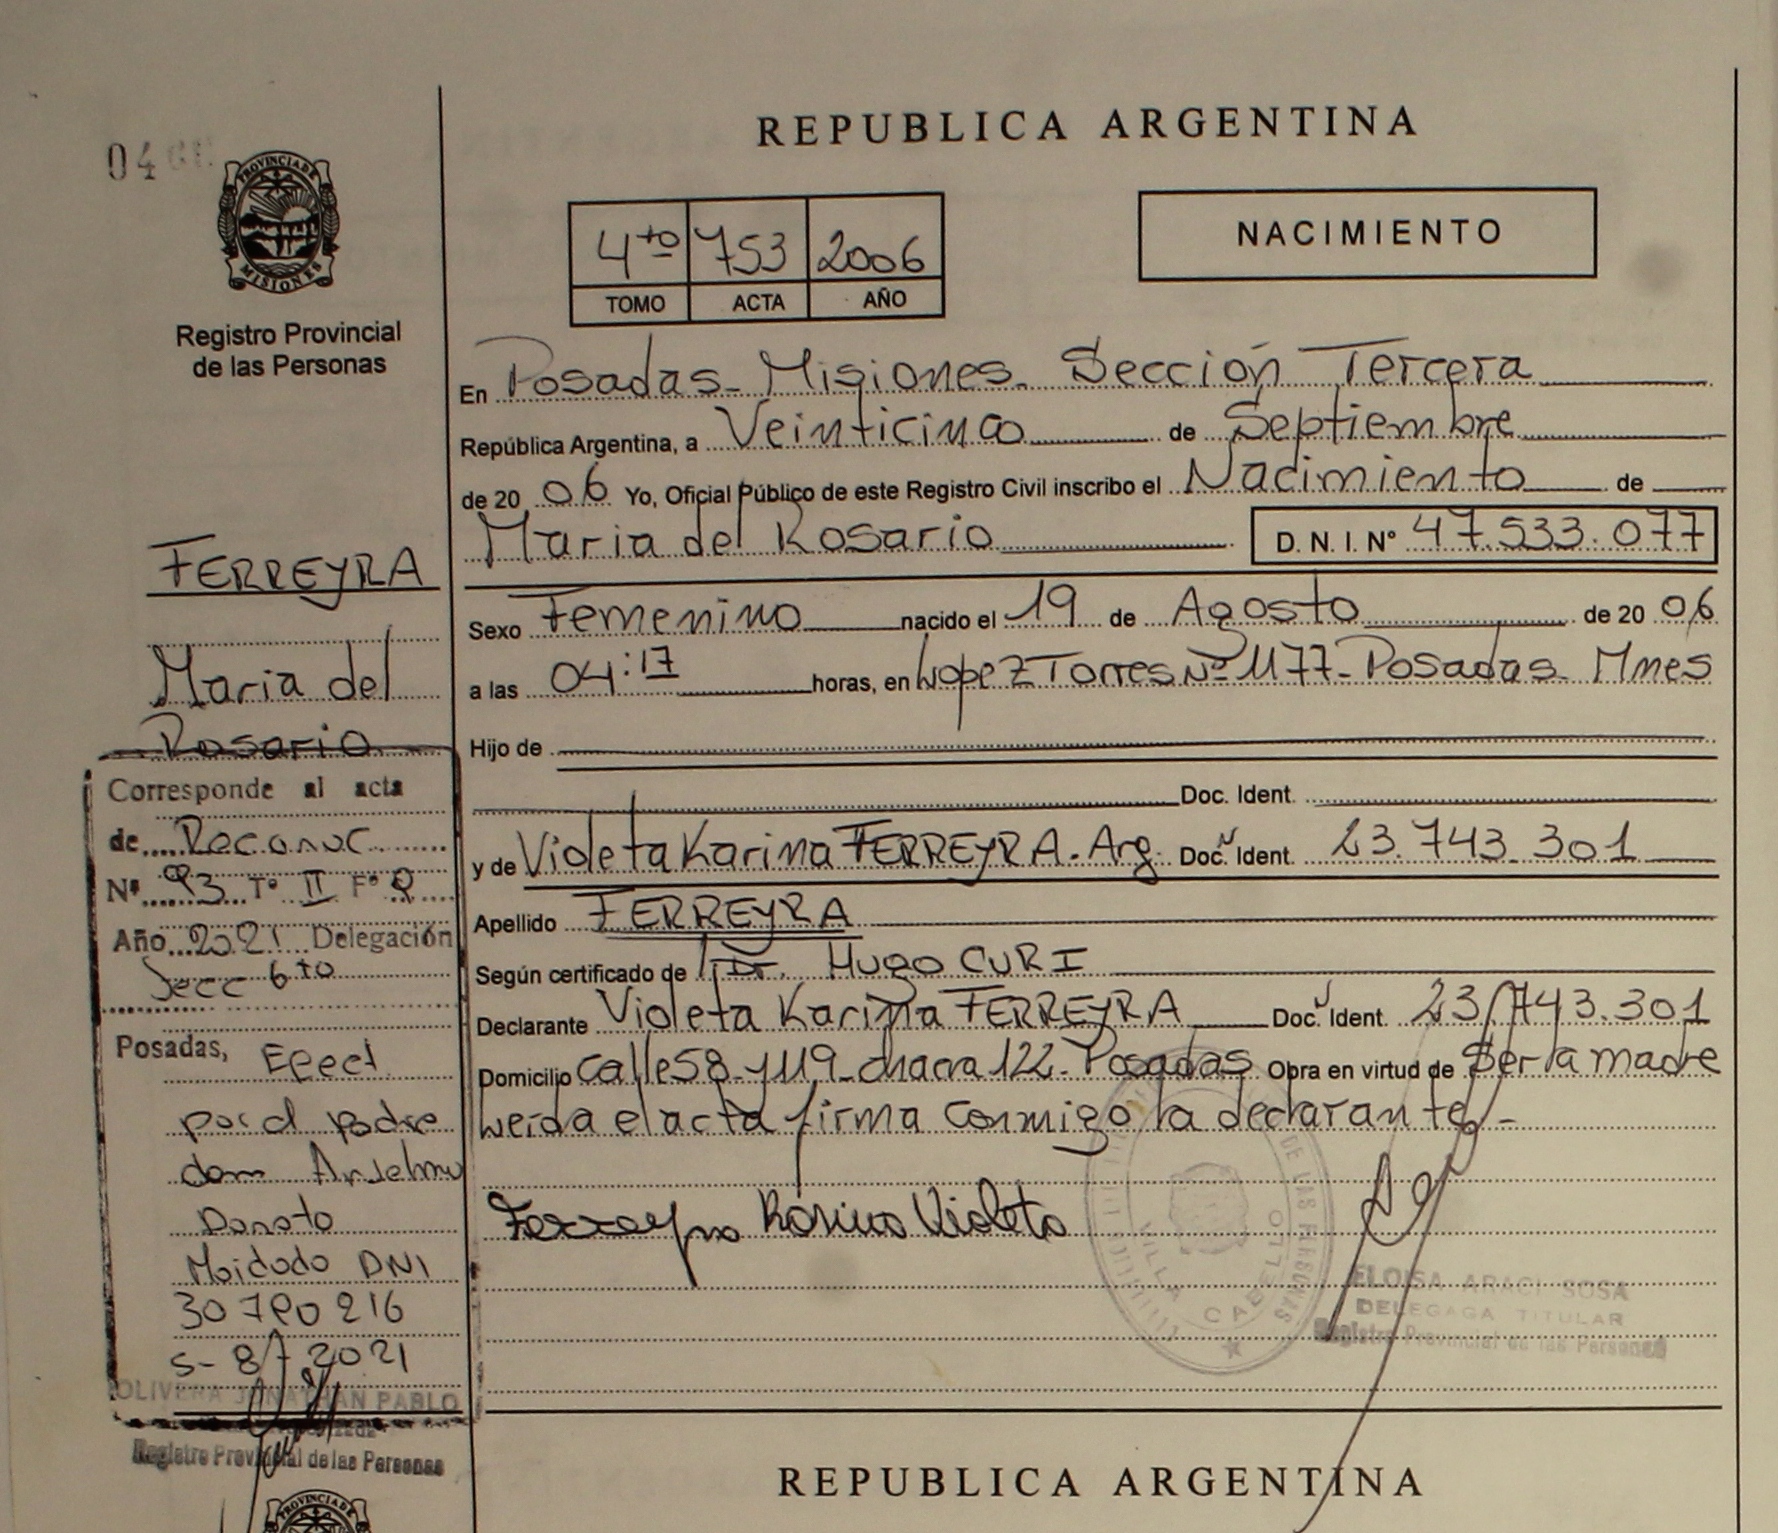 REPUBLICA ARGENTINA
04
PROVINCIA DE
MISIONES
Registro Provincial
de las Personas
4to 753 2006
TOMO ACTA AÑO
NACIMIENTO
En Posadas - Misiones. Sección Tercera
República Argentina, a Veinticinco de Septiembre
de 20 06 Yo, Oficial Público de este Registro Civil inscribo el Nacimiento de
Maria del Rosario D. N. I. Nº 47.533.077
Sexo Femenino nacido el 19 de Agosto de 20 06
a las 04:17 horas, en Lopez Torres Nº 1177 - Posadas Mnes
Hijo de
Doc. Ident.
y de Violeta Karina FERREYRA. Arg. Doc. Ident. 23.743.301
Apellido FERREYRA
Según certificado de Dr. Hugo CURI
Declarante Violeta Karina FERREYRA Doc. Ident. 23.743.301
Domicilio calle 58 - 119 - chacra 122 - Posadas Obra en virtud de Ser la madre
Leida el acta firma conmigo la declarante. -
Ferreyra Karina Violeta
VILLA CABELLO
ELOISA ARACI SOSA
DELEGADA TITULAR
Registro Provincial de las Personas
FERREYRA
Maria del
Rosario
Corresponde al acta
de Reconoc.
Nº 93 Tº II Fº
Año 2021 Delegación
Secc 6to
Posadas,
por el padre
don Anselmo
Donato
DNI
216
5-8-2021
OLIVERA JONATHAN PABLO
Registro Provincial de las Personas
REPUBLICA ARGENTINA